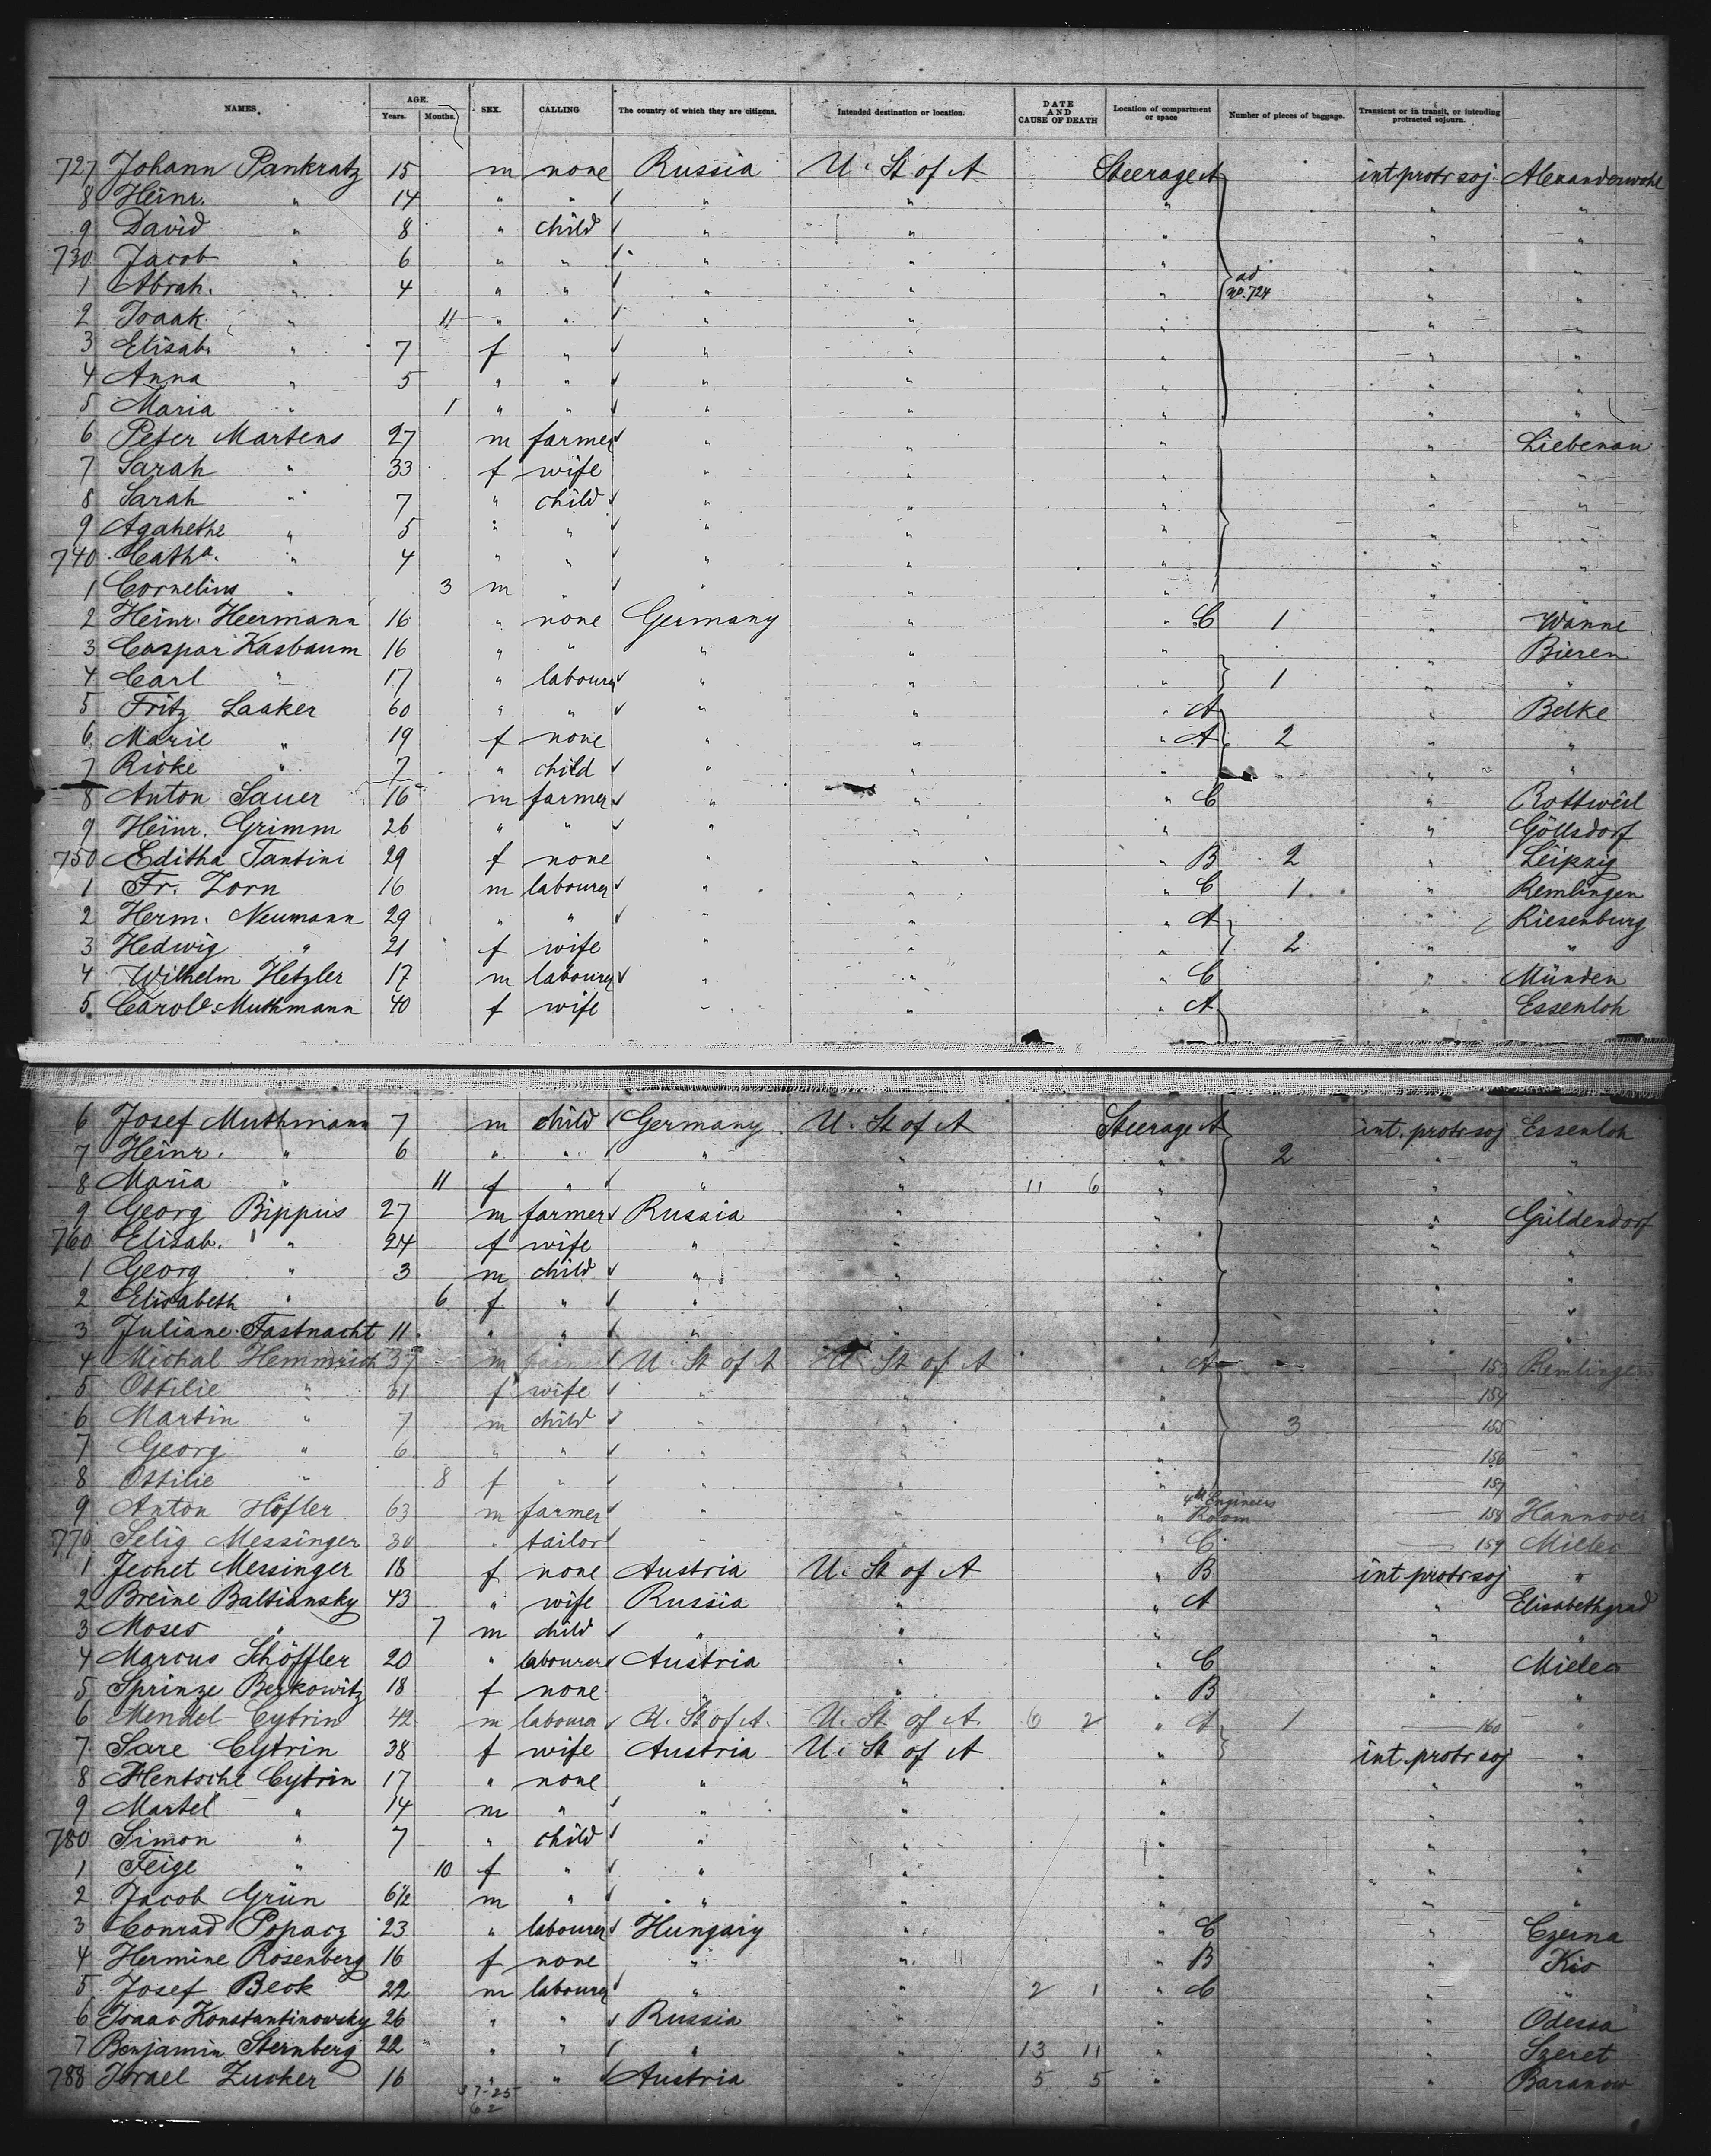 NAMES. AGE. Years. Months. SEX. CALLING The country of which they are citizens. Intended destination or location. DATE AND CAUSE OF DEATH Location of compartment or space Number of pieces of baggage. Transient or in transit, or intending protracted sojourn.
727 Johann Pankratz 15 m none Russia U. St of A Steerage A int protr soj. Alexanderwohl
8 Heinr. " 14 " " " " " " "
9 David " 8 " child " " " " "
730 Jacob " 6 " " " " " " "
1 Abrah. " 4 " " " " " ad no. 724 " "
2 Isaak " 11 " " " " " " "
3 Elisab. " 7 f " " " " " "
4 Anna " 5 " " " " " " "
5 Maria " 1 " " " " " " "
6 Peter Martens 27 m farmer " " " " Liebenau
7 Sarah " 33 f wife " " " " "
8 Sarah " 7 " child " " " " "
9 Agahethe " 5 " " " " " " "
740 Catha. " 4 " " " " " " "
1 Cornelius " 3 m " " " " " "
2 Heinr. Heermann 16 " none Germany " " C 1 " Wanne
3 Caspar Kasbaum 16 " " " " " " Bieren
4 Carl " 17 " labourer " " " 1 " "
5 Fritz Laaker 60 " " " " " A " Belke
6 Marie " 19 f none " " " A 2 " "
7 Rieke " 7 " child " " " " "
8 Anton Sauer 16 m farmer " " " C " Rottweil
9 Heinr. Grimm 26 " " " " " " Göllsdorf
750 Editha Tantini 29 f none " " " B 2 " Leipzig
1 Fr. Zorn 16 m labourer " " " C 1 " Remlingen
2 Herm. Neumann 29 " " " " " A " Riesenburg
3 Hedwig " 21 f wife " " " 2 " "
4 Wilhelm Hetzler 17 m labourer " " " C " Münden
5 Carole. Muthmann 40 f wife " " " A " Essenloh
6 Josef Muthmann 7 m child Germany U. St of A Steerage A int. protr soj Essenloh
7 Heinr. " 6 " " " " " 2 " "
8 Maria " 11 f " " " 11 6 " " "
9 Georg Bippus 27 m farmer Russia " " " Güldendorf
760 Elisab. " 24 f wife " " " " "
1 Georg " 3 m child " " " " "
2 Elisabeth " 6 f " " " " " "
3 Juliane Fastnacht 11 " " " " " " "
4 Michal Hemmrich 37 m U. St of A U. St of A " A 153 Remlingen
5 Ottilie " 31 f wife " " " 154
6 Martin " 7 m child " " " 3 155
7 Georg " 6 " " " " " 156 "
8 Ottilie " 8 f " " " " 157 "
9 Anton Höfler 63 m farmer " " " 4th Engineers Room 158 Hannover
770 Selig Messinger 30 " tailor " " " C 159 Mielec
1 Jechet Messinger 18 f none Austria U. St of A " B int protr soj "
2 Breine Baltiansky 43 " wife Russia " " A " Elisabethgrad
3 Moses " 7 m child " " " " "
4 Marcus Schöffler 20 " labourer Austria " " C " Mielec
5 Sprinze Berkowitz 18 f none " " " B " "
6 Mendel Cytrin 42 m laboura U. St of A. U. St of A. 6 2 " A 1 160 "
7 Sare Cytrin 38 f wife Austria U. St of A " int. protr soj "
8 Hentsche Cytrin 17 " none " " " " "
9 Martel " 14 m " " " " " "
780 Simon " 7 " child " " " " "
1 Feige " 10 f " " " " " "
2 Jacob Grün 6½ m " " " " " "
3 Conrad Popacz 23 " labourer Hungary " " C " Czerna
4 Hermine Rosenberg 16 f none " " " B " Kis
5 Josef Beck 22 m labourer " " 2 1 " C " "
6 Isaac Konstantinowsky 26 " " Russia " " " Odessa
7 Benjamin Sternberg 22 " " " " 13 11 " " Szeret
788 Israel Zucker 16 " " Austria " 5 5 " " Baranow
37-25
62